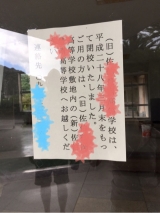 (旧)佐 学校は、
平成二十八年 月末をもっ
て閉校いたしました。
ご用の方は、(旧)佐
高等学校敷地内の(新)佐
高等学校へお越しくだ